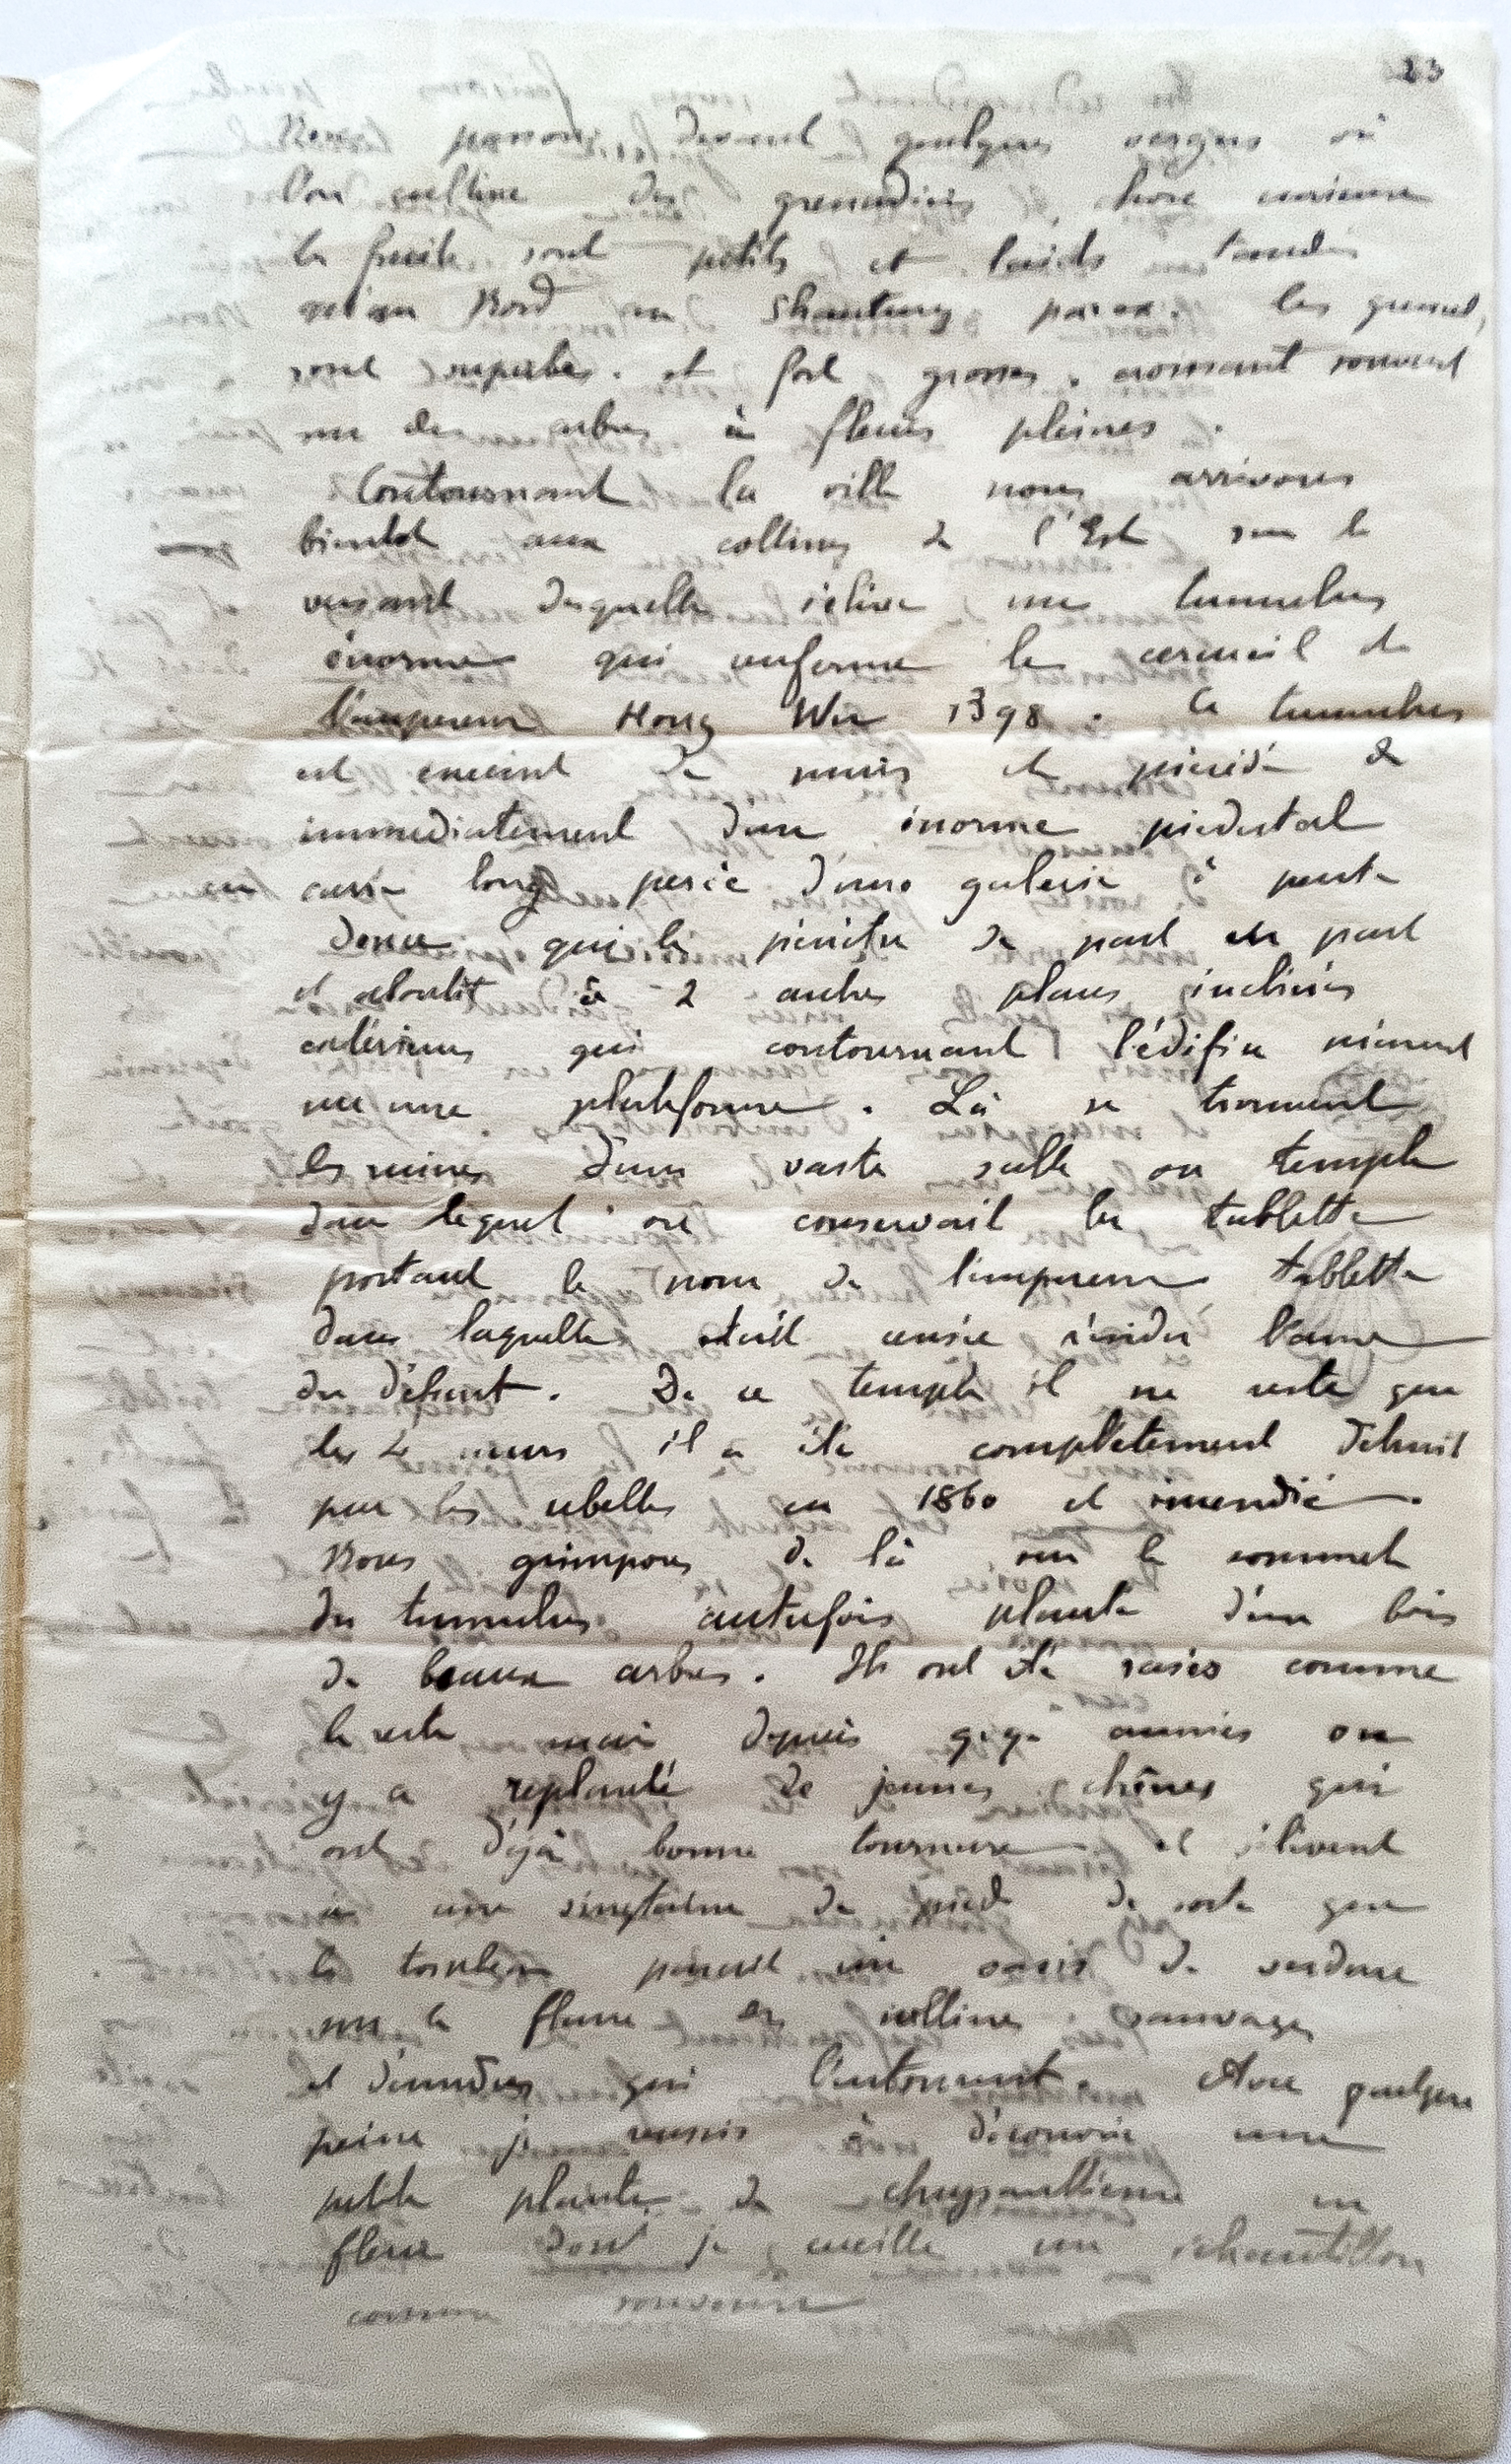 23
Nous passons devant quelques vergers où
l'on cultive des grenadiers, chose curieuse
les fruits sont petits et laids tandis
qu'au Nord au Shantung par ex. les grenad,
sont superbes. et fort grosses. croissant souvent
sur des arbres à fleurs pleines.
Contournant la ville nous arrivons
bientot aux collines de l'Est sur le
versant desquelles s'élève un tumulus
énorme qui renferme le cercueil de
l'empereur Hong Wu 1398. Ce tumulus
est enceint de murs et précédé de
immediatement d'un énorme piedestal
en carré long percé d'une galerie à pente
douce qui le pénètre de part en part
et aboutit à 2 autres plans inclinés
extérieurs qui contournant l'édifice mènent
sur une plateforme. Là se trouvent
les ruines d'une vaste salle ou temple
dans lequel on conservait la tablette
portant le nom de l'empereur tablette
dans laquelle était censée résider l'ame
du défunt. De ce temple il ne reste que
les 4 murs il a été complètement détruit
par les rebelles en 1860 et incendié.
Nous grimpons de là sur le sommet
du tumulus autrefois planté d'un bois
de beaux arbres. Ils ont été rasés comme
le reste mais depuis q.q. années on
y a replanté de jeunes chênes qui
ont déjà bonne tournure et s'élèvent
à une vingtaine de pieds de sorte que
le tombeau parait une oasis de verdure
sur le flanc des collines sauvages
et dénudées qui l'entourent. Avec quelque
peine je reussis à découvrir une
petite plante de chrysanthème en
fleur dont je cueille un échantillon
comme souvenir